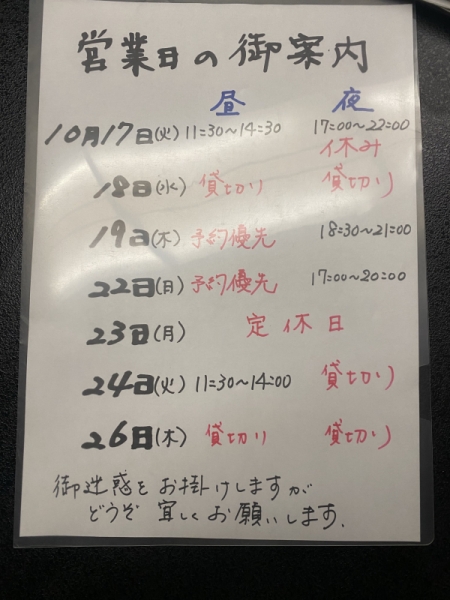 営業日の御案内
昼 夜
10月17日(火) 11:30~14:30 17:00~22:00
休み
18日(水) 貸切り 貸切り
19日(木) 予約優先 18:30~21:00
22日(月) 予約優先 17:00~20:00
23日(月) 定休日
24日(火) 11:30~14:00 貸切り
26日(木) 貸切り 貸切り
御迷惑をお掛けしますが
どうぞ宜しくお願いします.